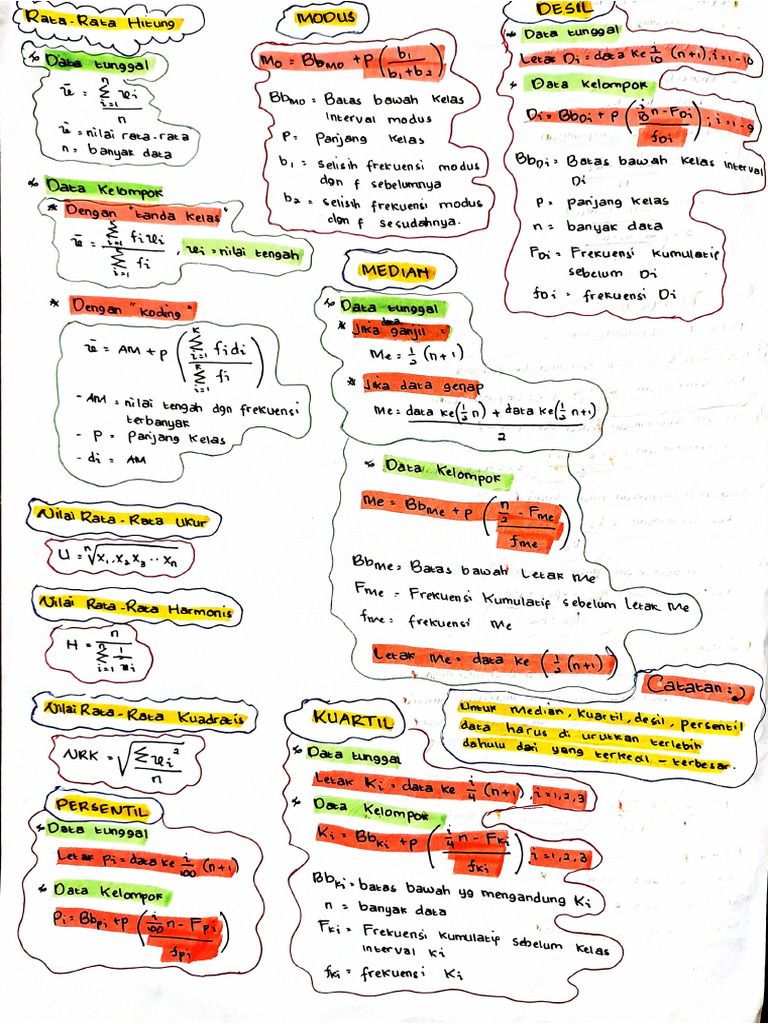 Rata-Rata Hitung
Data tunggal
x̄ = Σ(i=1, n) xi / n
x̄ = nilai rata-rata
n = banyak data
Data Kelompok
* Dengan "tanda kelas"
x̄ = Σ(i=1) fi xi / Σ(i=1) fi , xi = nilai tengah
* Dengan "Koding"
x̄ = AM + p ( Σ(i=1, k) fidi / Σ(i=1, k) fi )
- AM = nilai tengah dgn frekuensi
terbanyak
- P = Panjang Kelas
- di = AM
Nilai Rata-Rata Ukur
U = ⁿ√x1.x2 x3 ... xn
Nilai Rata-Rata Harmonis
H = n / Σ(i=1, n) 1/xi
Nilai Rata-Rata Kuadratis
NRK = √(Σxi² / n)
PERSENTIL
Data tunggal
Letak Pi = data ke i/100 (n+1)
Data Kelompok
Pi = Bbpi + p ( (i/100 n - Fpi) / fpi )
MODUS
Mo = BbMo + p ( b1 / (b1 + b2) )
BbMo = Batas bawah Kelas
Interval modus
P = Panjang Kelas
b1 = selisih frekuensi modus
dgn f sebelumnya
b2 = selisih frekuensi modus
dgn f sesudahnya.
MEDIAN
Data tunggal
* Jika data ganjil =
Me = 1/2 (n+1)
* Jika data genap
Me = (data ke(1/2 n) + data ke(1/2 n+1)) / 2
Data Kelompok
Me = BbMe + p ( (n/2 - FMe) / fMe )
BbMe = Batas bawah Letak Me
FMe = Frekuensi Kumulatif sebelum Letak Me
fMe = frekuensi Me
Letak Me = data ke (1/2 (n+1))
DESIL
Data tunggal
Letak Di = data ke i/10 (n+1), i = 1-10
Data Kelompok
Di = BbDi + p ( (i/10 n - FDi) / fDi ) ; i = 1-9
BbDi = Batas bawah Kelas Interval
Di
P = panjang kelas
n = banyak data
FDi = Frekuensi Kumulatif
sebelum Di
fDi = frekuensi Di
Catatan :
Untuk Median, Kuartil, desil, persentil
data harus di urutkan terlebih
dahulu dari yang terkecil - terbesar.
KUARTIL
Data tunggal
Letak Ki = data ke i/4 (n+1), i = 1, 2, 3
Data Kelompok
Ki = BbKi + p ( (i/4 n - FKi) / fKi ) , i = 1, 2, 3
BbKi = batas bawah yg mengandung Ki
n = banyak data
FKi = Frekuensi Kumulatif sebelum Kelas
interval Ki
fKi = frekuensi Ki